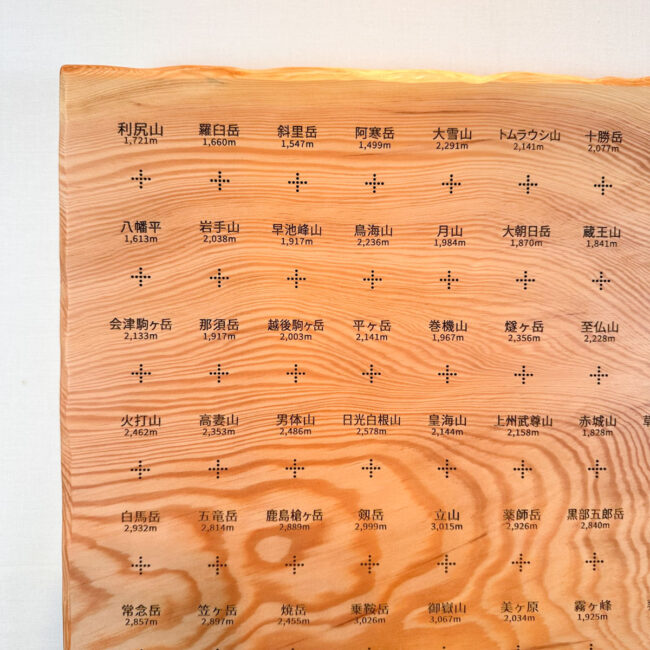 利尻山 羅臼岳 斜里岳 阿寒岳 大雪山 トムラウシ山 十勝岳
1,721m 1,660m 1,547m 1,499m 2,291m 2,141m 2,077m
八幡平 岩手山 早池峰山 鳥海山 月山 大朝日岳 蔵王山
1,613m 2,038m 1,917m 2,236m 1,984m 1,870m 1,841m
会津駒ヶ岳 那須岳 越後駒ヶ岳 平ヶ岳 巻機山 燧ヶ岳 至仏山
2,133m 1,917m 2,003m 2,141m 1,967m 2,356m 2,228m
火打山 高妻山 男体山 日光白根山 皇海山 上州武尊山 赤城山
2,462m 2,353m 2,486m 2,578m 2,144m 2,158m 1,828m
白馬岳 五竜岳 鹿島槍ヶ岳 剱岳 立山 薬師岳 黒部五郎岳
2,932m 2,814m 2,889m 2,999m 3,015m 2,926m 2,840m
常念岳 笠ヶ岳 焼岳 乗鞍岳 御嶽山 美ヶ原 霧ヶ峰
2,857m 2,897m 2,455m 3,026m 3,067m 2,034m 1,925m